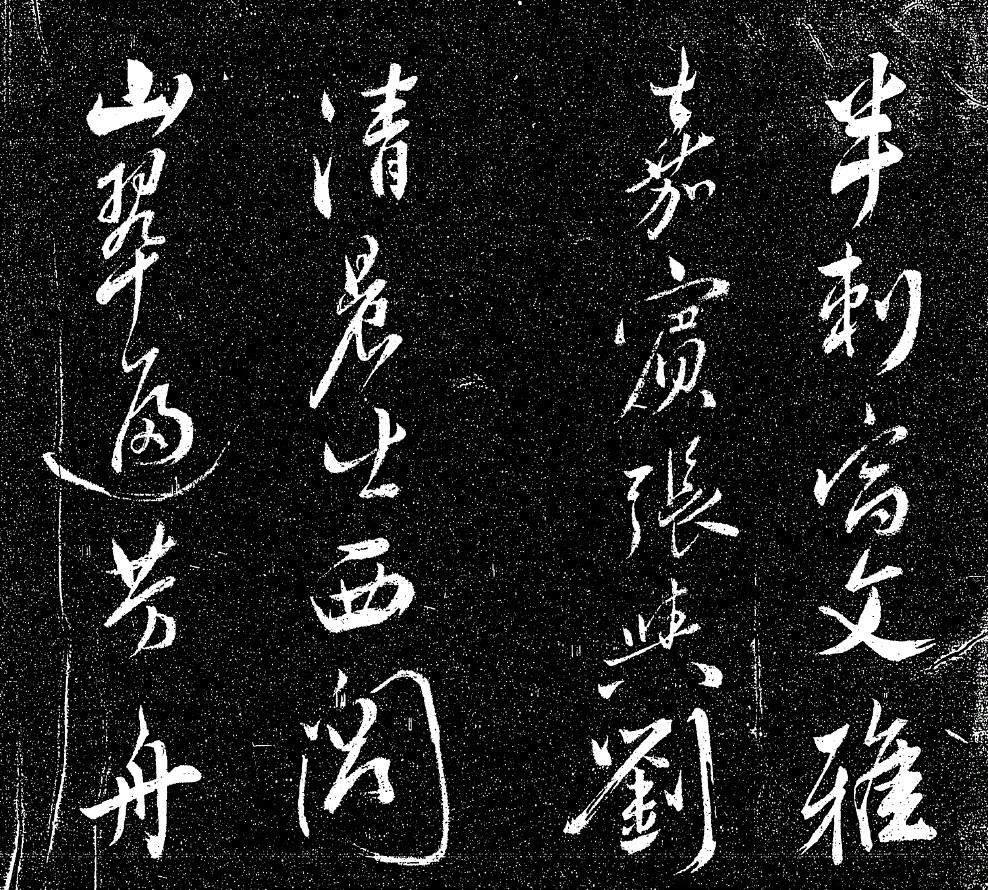 半刺富文雅
嘉賓張與劉
清晨出西閣
山翠遍芳舟